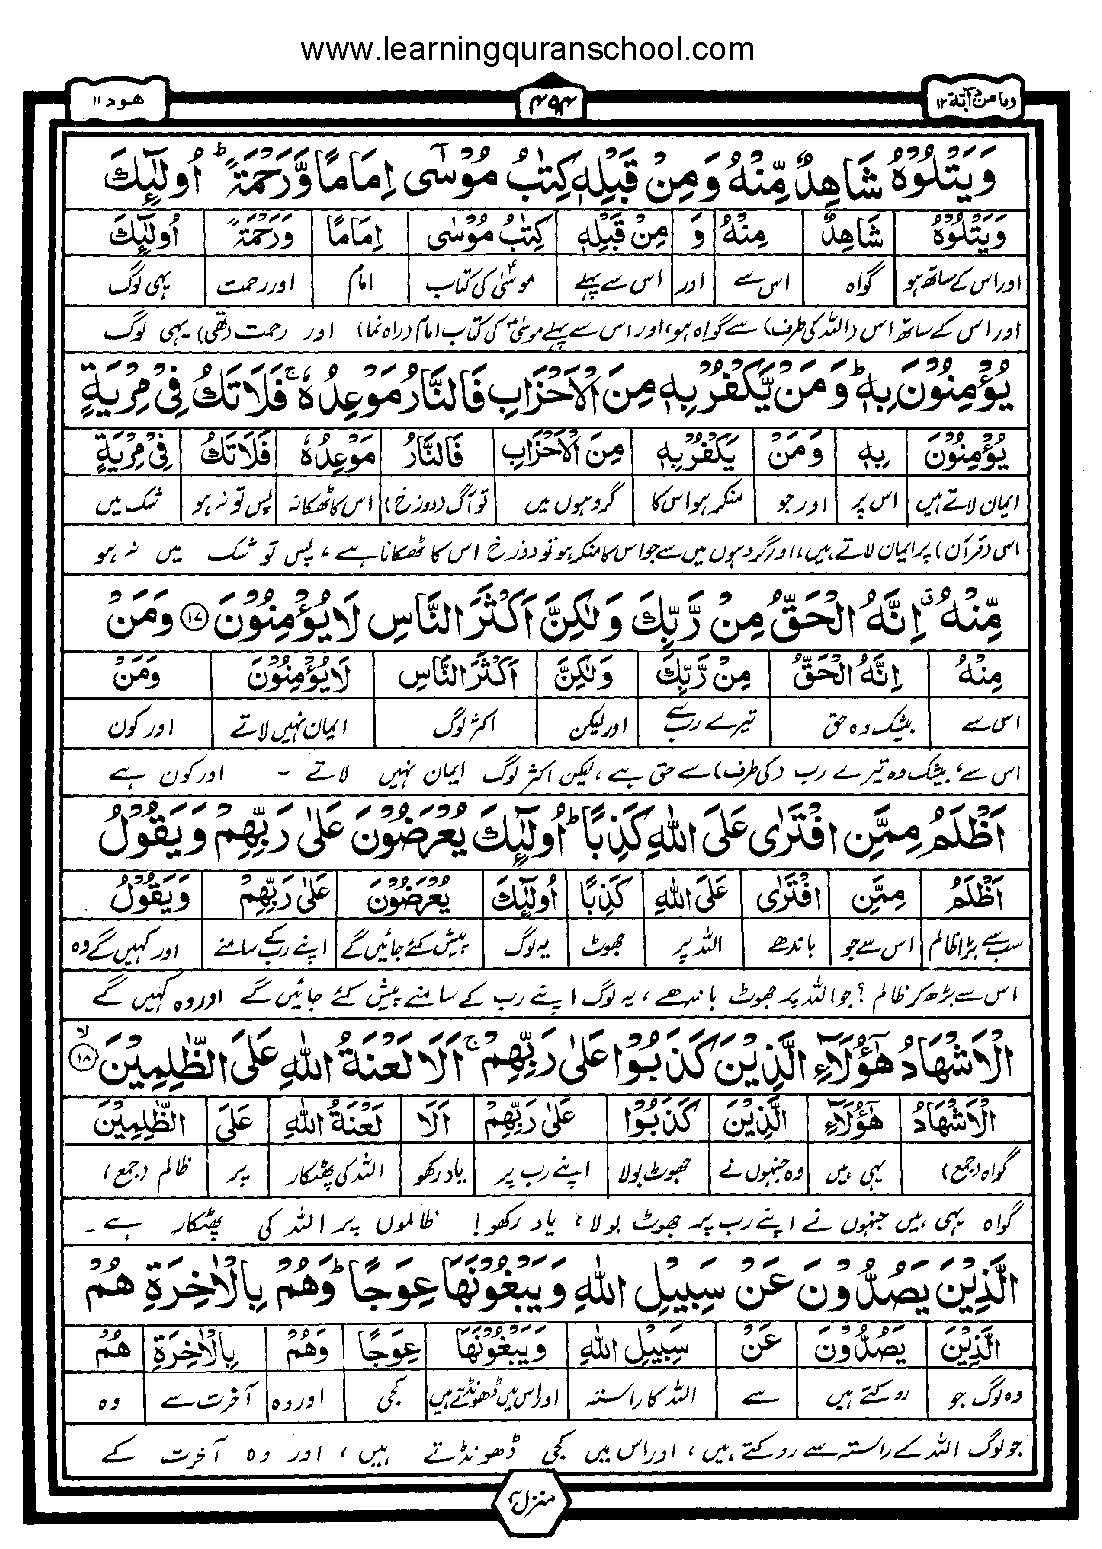 www.learningquranschool.com
وما من دآبة ١٢
۴۹۴
هود ١١
وَيَتْلُوْهُ شَاهِدٌ مِّنْهُ وَمِنْ قَبْلِهٖ كِتٰبُ مُوْسٰٓى اِمَامًا وَّرَحْمَةً ؕ اُولٰٓئِكَ
وَيَتْلُوْهُ شَاهِدٌ مِنْهُ وَ مِنْ قَبْلِهٖ كِتٰبُ مُوْسٰى اِمَامًا وَرَحْمَةً اُولٰٓئِكَ
اور اس کے ساتھ ہو گواہ اس سے اور اس سے پہلے موسٰیؑ کی کتاب امام اور رحمت یہی لوگ
اور اس کے ساتھ اس (اللہ کی طرف) سے گواہ ہو، اور اس سے پہلے موسٰیؑ کی کتاب امام (راہ نما) اور رحمت (تھی) یہی لوگ
يُؤْمِنُوْنَ بِهٖ ؕ وَمَنْ يَّكْفُرْ بِهٖ مِنَ الْاَحْزَابِ فَالنَّارُ مَوْعِدُهٗ ۚ فَلَا تَكُ فِيْ مِرْيَةٍ
يُؤْمِنُوْنَ بِهٖ وَمَنْ يَكْفُرْ بِهٖ مِنَ الْاَحْزَابِ فَالنَّارُ مَوْعِدُهٗ فَلَا تَكُ فِيْ مِرْيَةٍ
ایمان لاتے ہیں اس پر اور جو منکر ہو اس کا گروہوں میں تو آگ (دوزخ) اس کا ٹھکانہ پس تو نہ ہو شک میں
اس (قرآن) پر ایمان لاتے ہیں، اور گروہوں میں سے جو اس کا منکر ہو تو دوزخ اس کا ٹھکانا ہے، پس تو شک میں نہ ہو
مِّنْهُ ۗ اِنَّهُ الْحَقُّ مِنْ رَّبِّكَ وَلٰكِنَّ اَكْثَرَ النَّاسِ لَا يُؤْمِنُوْنَ ١٧ وَمَنْ
مِنْهُ اِنَّهُ الْحَقُّ مِنْ رَّبِّكَ وَلٰكِنَّ اَكْثَرَ النَّاسِ لَا يُؤْمِنُوْنَ وَمَنْ
اس سے بیشک وہ حق تیرے رب سے اور لیکن اکثر لوگ ایمان نہیں لاتے اور کون
اس سے، بیشک وہ تیرے رب (کی طرف) سے حق ہے، لیکن اکثر لوگ ایمان نہیں لاتے - اور کون ہے
اَظْلَمُ مِمَّنِ افْتَرٰى عَلَى اللّٰهِ كَذِبًا ؕ اُولٰٓئِكَ يُعْرَضُوْنَ عَلٰى رَبِّهِمْ وَيَقُوْلُ
اَظْلَمُ مِمَّنِ افْتَرٰى عَلَى اللّٰهِ كَذِبًا اُولٰٓئِكَ يُعْرَضُوْنَ عَلٰى رَبِّهِمْ وَيَقُوْلُ
سب سے بڑا ظالم اس سے جو باندھے اللہ پر جھوٹ یہ لوگ پیش کئے جائیں گے اپنے رب کے سامنے اور کہیں گے وہ
اس سے بڑھ کر ظالم؟ جو اللہ پر جھوٹ باندھے، یہ لوگ اپنے رب کے سامنے پیش کئے جائیں گے اور وہ کہیں گے
الْاَشْهَادُ هٰٓؤُلَآءِ الَّذِيْنَ كَذَبُوْا عَلٰى رَبِّهِمْ ۚ اَلَا لَعْنَةُ اللّٰهِ عَلَى الظّٰلِمِيْنَ ۙ ١٨
الْاَشْهَادُ هٰٓؤُلَآءِ الَّذِيْنَ كَذَبُوْا عَلٰى رَبِّهِمْ اَلَا لَعْنَةُ اللّٰهِ عَلَى الظّٰلِمِيْنَ
گواہ (جمع) یہی ہیں وہ جنہوں نے جھوٹ بولا اپنے رب پر یاد رکھو اللہ کی پھٹکار پر ظالم (جمع)
گواہ یہی ہیں جنہوں نے اپنے رب پر جھوٹ بولا، یاد رکھو! ظالموں پر اللہ کی پھٹکار ہے۔
الَّذِيْنَ يَصُدُّوْنَ عَنْ سَبِيْلِ اللّٰهِ وَيَبْغُوْنَهَا عِوَجًا ؕ وَهُمْ بِالْاٰخِرَةِ هُمْ
الَّذِيْنَ يَصُدُّوْنَ عَنْ سَبِيْلِ اللّٰهِ وَيَبْغُوْنَهَا عِوَجًا وَهُمْ بِالْاٰخِرَةِ هُمْ
وہ لوگ جو روکتے ہیں سے اللہ کا راستہ اور اس میں ڈھونڈتے ہیں کجی اور وہ آخرت سے وہ
جو لوگ اللہ کے راستہ سے روکتے ہیں، اور اس میں کجی ڈھونڈتے ہیں، اور وہ آخرت کے
منزل ۳